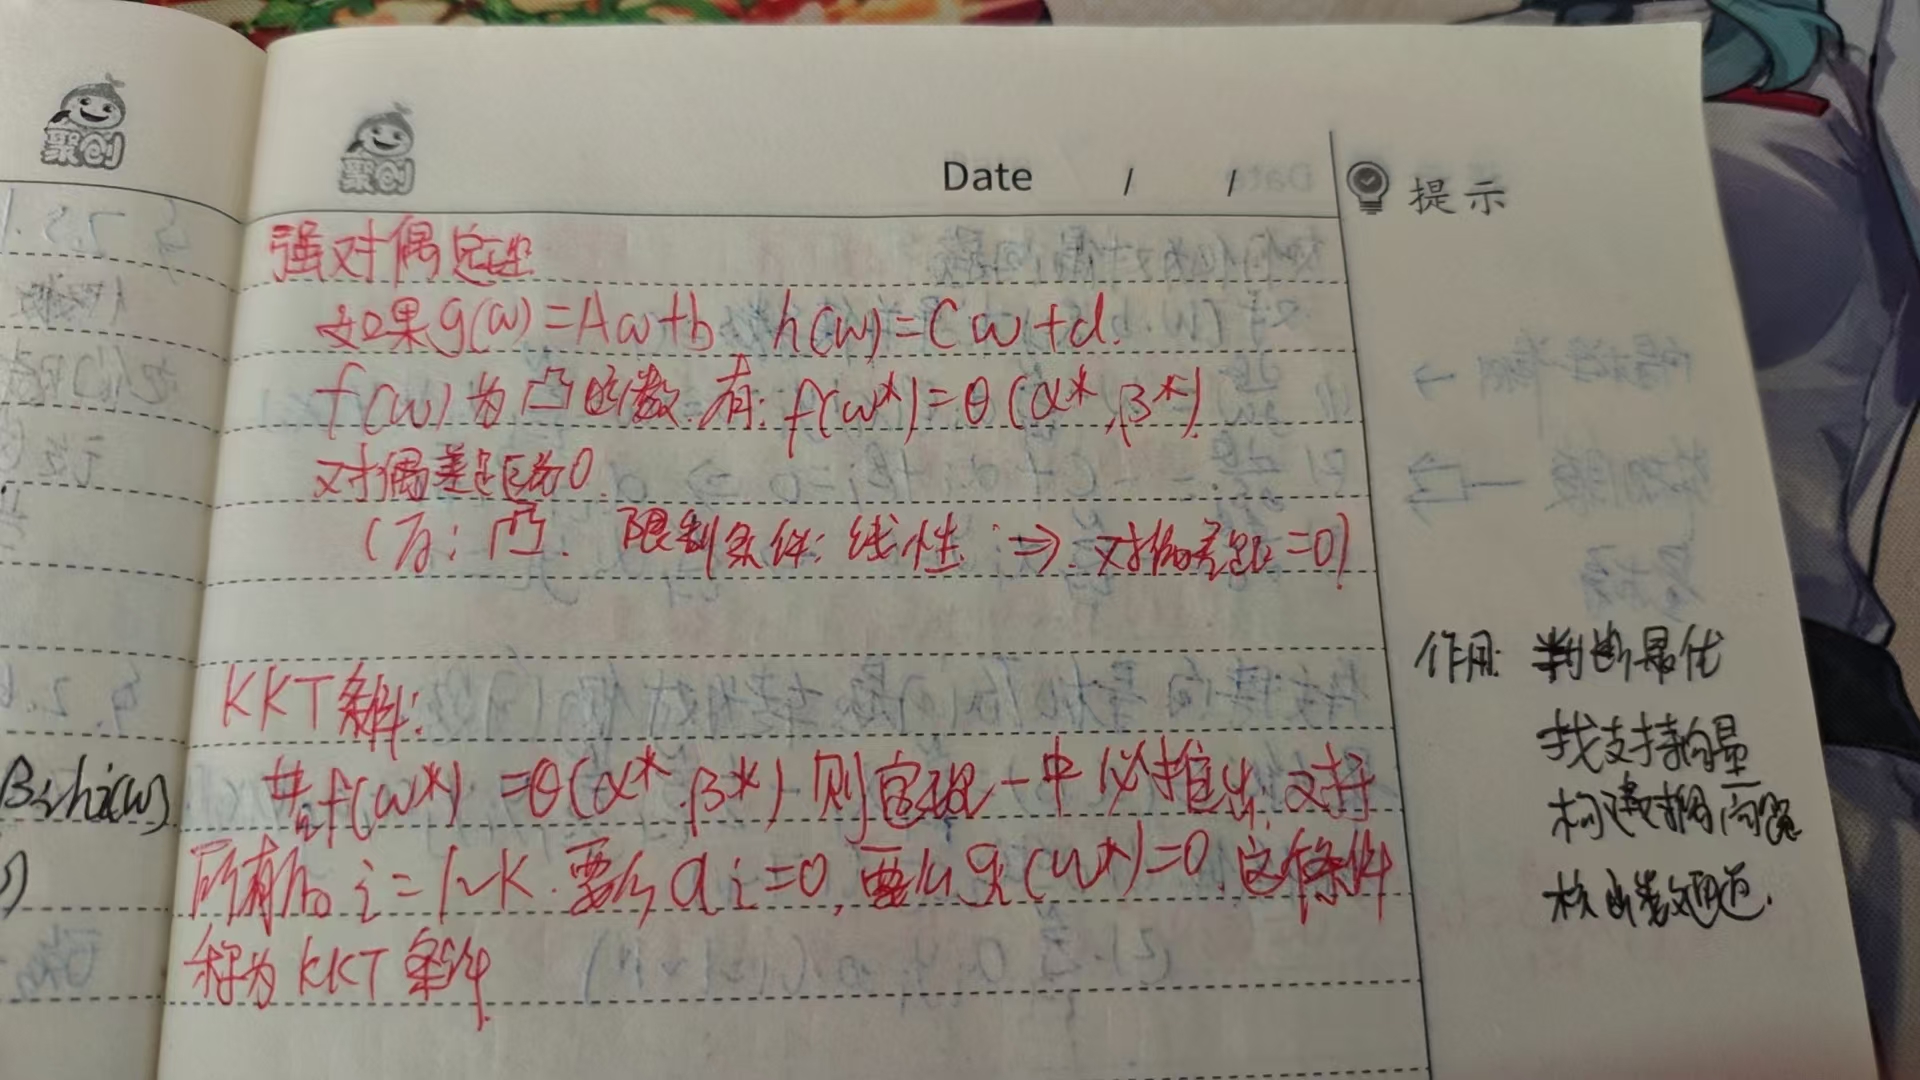 聚创
聚创
Date / /
提示
强对偶定理
如果g(w)=Aw+b h(w)=Cw+d.
f(w)为凸函数.有:f(w*)=θ(α*,β*)
对偶差距为0.
(有:凸. 限制条件:线性 ⇒ 对偶差距=0)
KKT条件:
若f(w*)=θ(α*,β*)则定理一中必推出,对于
所有的 i=1~K.要么αi=0,要么gi(w*)=0.这个条件
称为KKT条件
作用:判断最优
找支持向量
构建对偶问题
核函数
βihi(w)